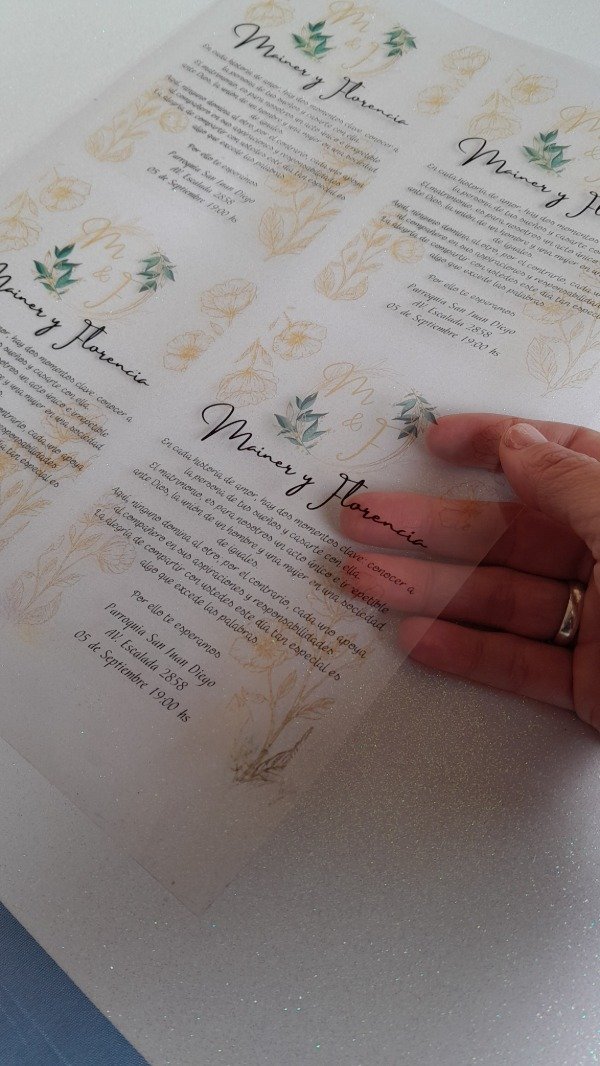 M & F
Mainer y Florencia
En cada historia de amor, hay dos momentos clave, conocer a
la persona de tus sueños y casarte con ella.
El matrimonio, es para nosotros un acto único e irrepetible
ante Dios, la unión, de un hombre y una mujer en una sociedad
de iguales.
Aquí, ninguno domina al otro, por el contrario, cada uno apoya
al compañero en sus aspiraciones y responsabilidades.
La alegría de compartir con ustedes este día tan especial es
algo que excede las palabras.
Por ello te esperamos
Parroquia San Juan Diego
AV. Escalada 2858
05 de Septiembre 19:00 hs
M &
Mainer y
En cada historia de amor, hay dos momentos
la persona de tus sueños y casarte
El matrimonio, es para nosotros un acto único
ante Dios, la unión, de un hombre y una mujer
de iguales.
Aquí, ninguno domina al otro, por el contrario, cada
al compañero en sus aspiraciones y responsabilidad
La alegría de compartir con ustedes este día tan espec
algo que excede las palabras.
Por ello te esperamos
Parroquia San Juan Diego
AV. Escalada 2858
05 de Septiembre 19:00 hs
M & F
Mainer y Florencia
amor, hay dos momentos clave, conocer a
sueños y casarte con ella.
nosotros un acto único e irrepetible
y una mujer en una sociedad
contrario, cada uno apoya
responsabilidades.
día tan especial es
M & F
Mainer y Florencia
En cada historia de amor, hay dos momentos clave, conocer a
la persona de tus sueños y casarte con ella.
El matrimonio, es para nosotros un acto único e irrepetible
ante Dios, la unión, de un hombre y una mujer en una sociedad
de iguales.
Aquí, ninguno domina al otro, por el contrario, cada uno apoya
al compañero en sus aspiraciones y responsabilidades.
La alegría de compartir con ustedes este día tan especial es
algo que excede las palabras.
Por ello te esperamos
Parroquia San Juan Diego
AV. Escalada 2858
05 de Septiembre 19:00 hs